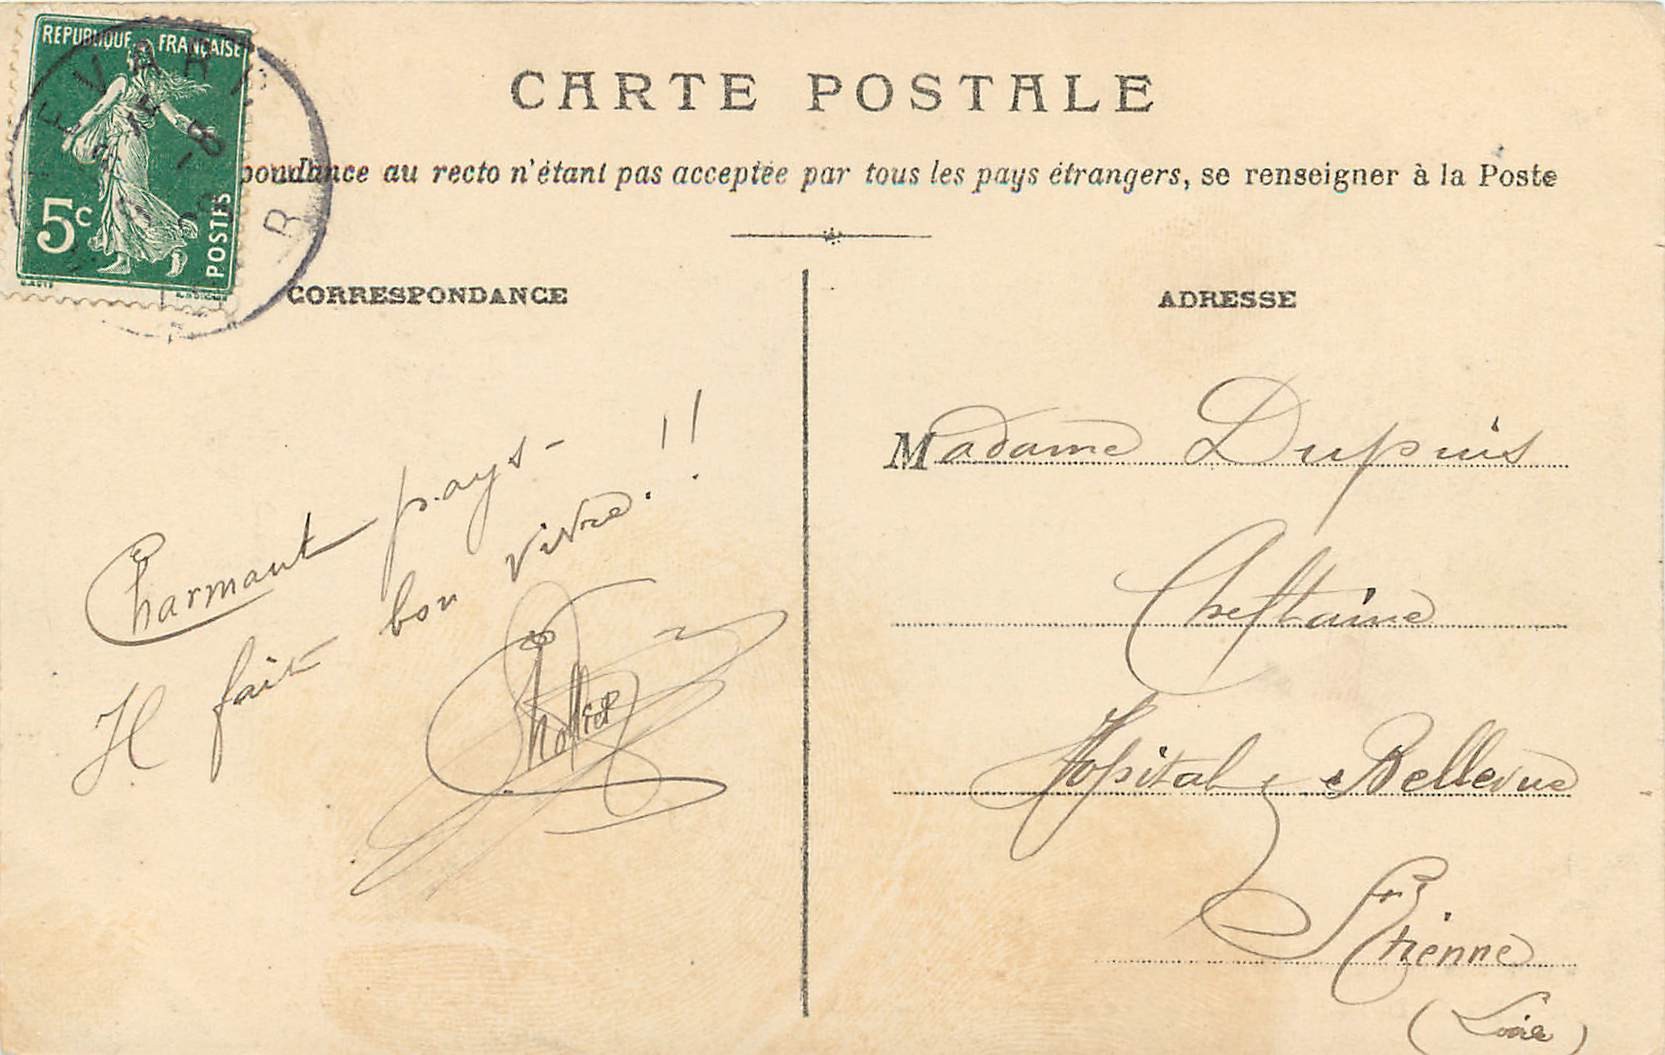 REPUBLIQUE FRANÇAISE
5c
POSTES
CARTE POSTALE
pondance au recto n'étant pas acceptée par tous les pays étrangers, se renseigner à la Poste
CORRESPONDANCE
Charmant pays -
Il fait bon vivre. !!
ADRESSE
Madame Dupuis
Cheftaine
Hopital Bellevue
St Etienne
(Loire)